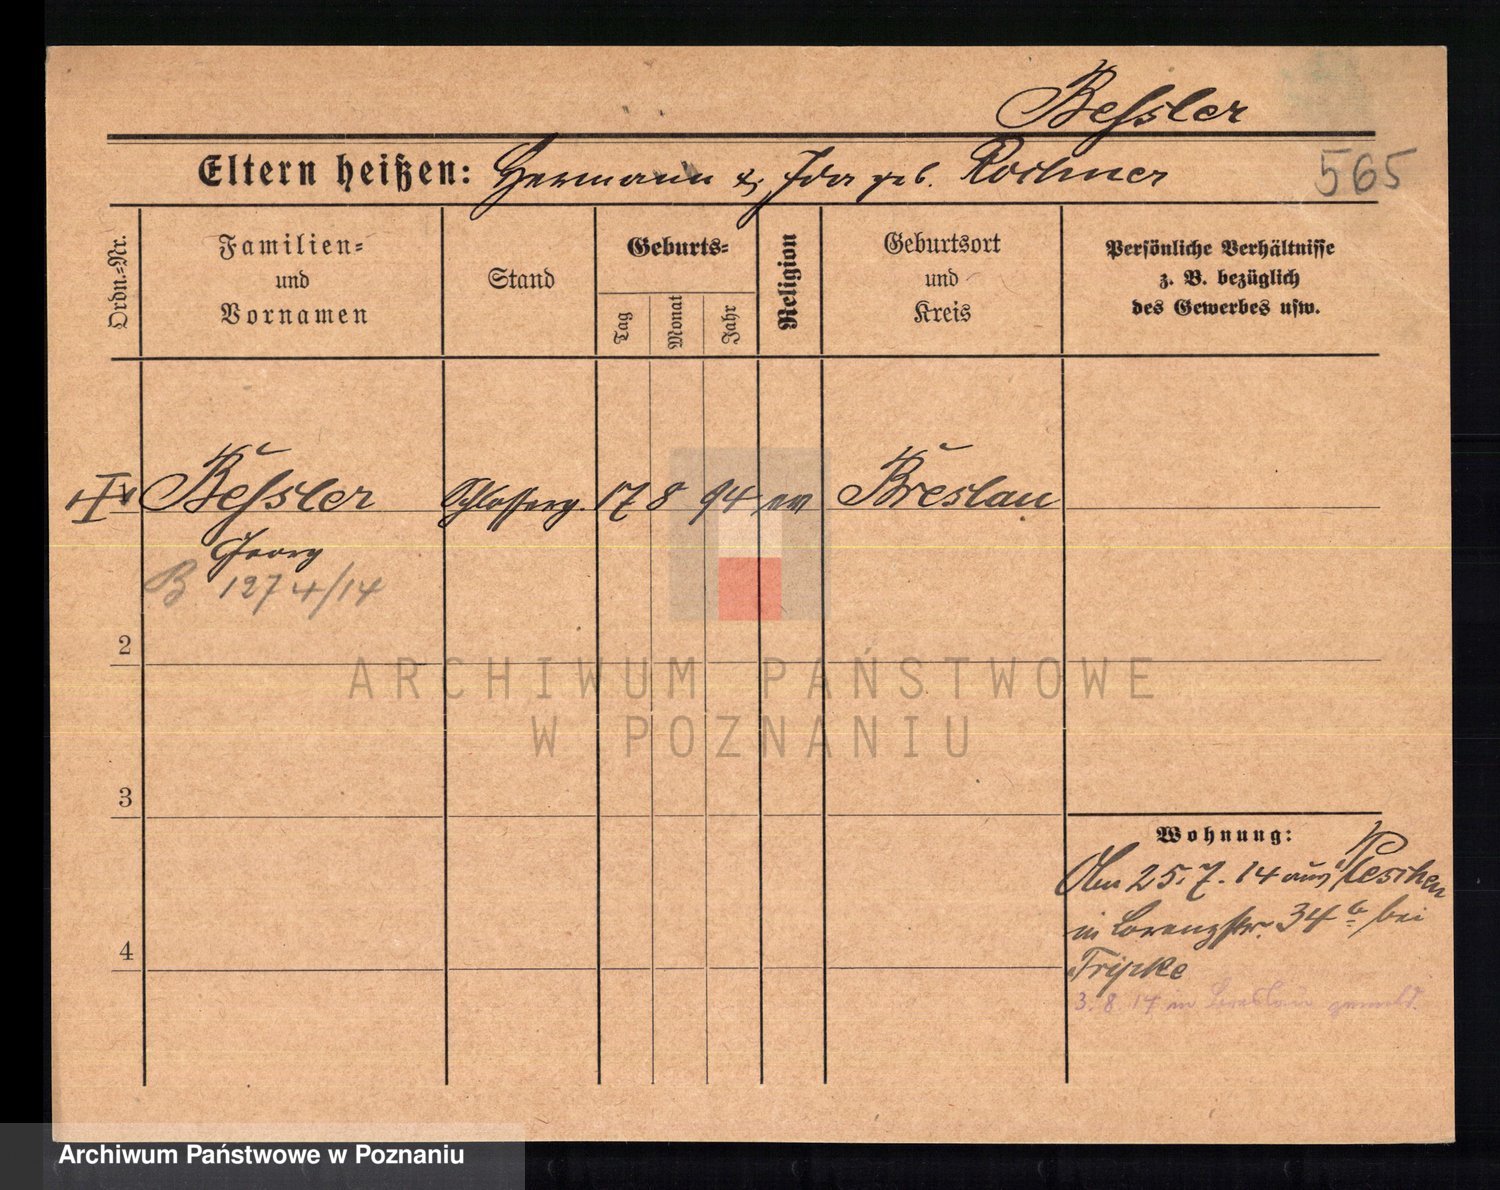 Beſsler
Eltern heißen: Hermann & Ida geb. Rochner
565
Ordn.-Nr.
Familien-
und
Vornamen
Stand
Geburts-
Tag
Monat
Jahr
Religion
Geburtsort
und
Kreis
Persönliche Verhältnisse
z. B. bezüglich
des Gewerbes usw.
Beſsler Schlosserg. 17 8 94 ev Breslau
Georg
B 1274/14
2
3
4
Wohnung:
Am 25.7.14 aus Pleschen
in Lorenzstr. 34 b bei
Tripke
3. 8. 14 in Breslau gemeld.
ARCHIWUM PAŃSTWOWE
W POZNANIU
Archiwum Państwowe w Poznaniu